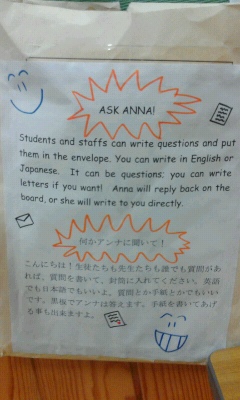 ASK ANNA!
Students and staffs can write questions and put
them in the envelope. You can write in English or
Japanese. It can be questions; you can write
letters if you want! Anna will reply back on the
board, or she will write to you directly.
何かアンナに聞いて！
こんにちは！生徒たちも先生たちも誰でも質問があ
れば、質問を書いて、封筒に入れてください。英語
でも日本語でもいいよ。質問とか手紙とかでもいい
です。黒板でアンナは答えます。手紙を書いてあげ
る事も出来ますよ。